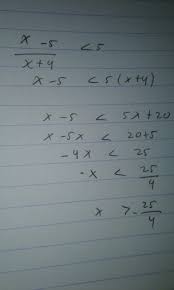 x - 5 / x + 4 < 5
x - 5 < 5 (x+4)
x - 5 < 5x + 20
x - 5x < 20 + 5
-4x < 25
-x < 25/4
x > -25/4